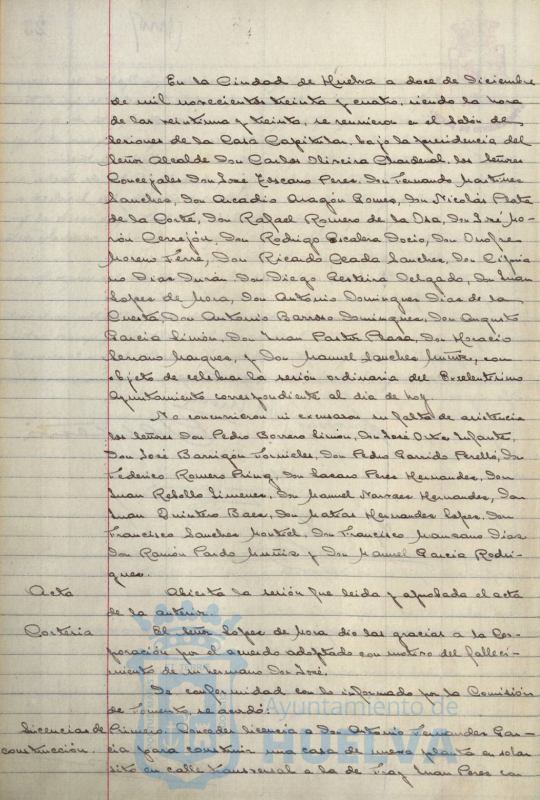 En la Ciudad de Huelva a doce de Diciembre
de mil novecientos treinta y cuatro, siendo la hora
de las veintiuna y treinta, se reunieron en el Salón de
Sesiones de la Casa Capitular, bajo la presidencia del
Señor Alcalde Don Carlos Oliveira Chardenal, los Señores
Concejales Don José Toscano Perez, Don Fernando Martinez
Sanchez, Don Arcadio Aragón Gomez, Don Nicolás Plata
de la Corte, Don Rafael Romero de la Osa, Don José Mo-
rón Cerrejón, Don Rodrigo Escalera Docio, Don Onofre
Moreno Ferré, Don Ricardo Ceada Sanchez, Don Cipria
no Diaz Durán, Don Diego Gesteira Delgado, Don Juan
Lopez de Mora, Don Antonio Dominguez Diaz de la
Cuesta, Don Antonio Barroso Dominguez, Don Augusto
Garcia Limón, Don Juan Pastor, Don Horacio
Serrano Marquez, y Don Manuel Sanchez Muñoz, con
objeto de celebrar la sesión ordinaria del Excelentísimo
Ayuntamiento correspondiente al dia de hoy.
No concurrieron ni excusaron su falta de asistencia
los señores Don Pedro Borrero Limón, Don José Orta Infante,
Don José Barrigón Fornieles, Don Pedro Garrido Perelló, Don
Federico Romero, Don Lazaro Perez Hernandez, Don
Juan Rebollo Jimenez, Don Manuel Narvaez Hernandez, Don
Juan Quintero Baez, Don Matias Hernandez Lopez, Don
Francisco Sanchez Montiel, Don Francisco Manzano Diaz
Don Ramón Pardo Muñiz y Don Manuel Garcia Rodri-
guez.
Acta Abierta la sesión fue leida y aprobada el acta
de la anterior.
Cortesia El Señor Lopez de Mora dio las gracias a la Cor-
poración por el acuerdo adoptado con motivo del falleci-
miento de su hermano Don José.
De conformidad con lo informado por la Comisión
de Fomento, se acordó:
Licencias de Primero: Conceder licencia a Don Antonio Fernandez Gar-
construcción. cia para construir una casa de nueva planta en solar
sito en calle transversal a la de Fray Juan Perez con
Ayuntamiento de
HUELVA